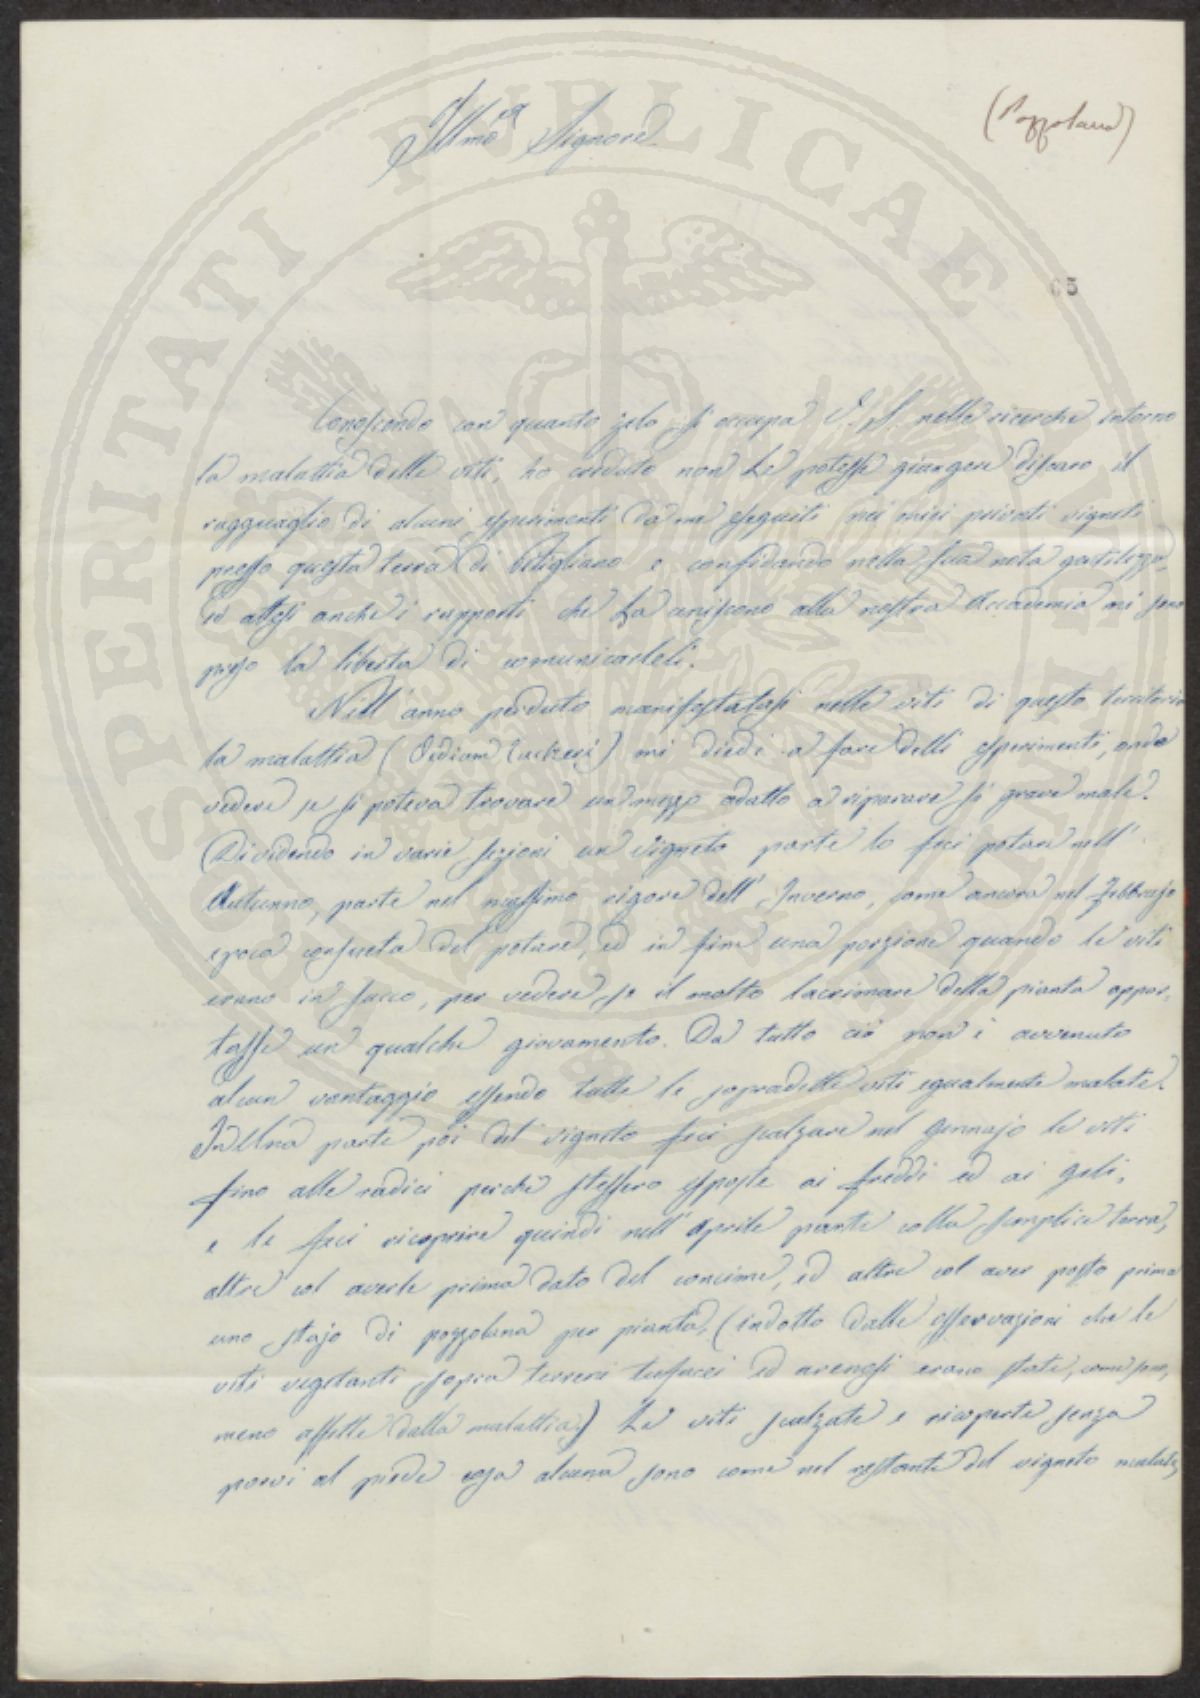 (Pozzolana)
Illmo Signore
65
Conoscendo con quanto zelo si occupa V. S. nelle ricerche intorno
la malattia delle viti, ho creduto non Le potesse giungere discaro il
ragguaglio di alcuni esperimenti da me eseguiti nei miei privati vigneti
presso questa terra di Pitigliano e confidando nella sua nota gentilezza
ed attesi anche i rapporti che La uniscono alla nostra Accademia mi sono
preso la libertà di comunicarteli.
Nell'anno perduto manifestatasi nelle viti di questo territorio
la malattia (Oidium Tuckeri) mi diedi a fare delli esperimenti, onde
vedere se si poteva trovare un mezzo adatto a riparare sì grave male.
Dividendo in varie sezioni un vigneto parte lo feci potare nell'
Autunno, parte nel massimo rigore dell'Inverno, come ancora nel Febbrajo
epoca consueta del potare, ed in fine una porzione quando le viti
erano in succo, per vedere se il molto lacrimare della pianta appor,
tasse un qualche giovamento. Da tutto ciò non è avvenuto
alcun vantaggio essendo tutte le sopradette viti egualmente malate.
In Una parte poi del vigneto feci scalzare nel Gennajo le viti
fino alle radici perchè stessero esposte ai freddi ed ai geli,
e le feci ricoprire quindi nell'Aprile piante colla semplice terra,
altre col averle prima dato del concime, ed altre col aver posto prima
uno stajo di pozzolana per pianta, (indotto dalle osservazioni che le
viti vegetanti sopra terreni tufacei ed arenosi erano state, come sono,
meno affette dalla malattia) Le viti scalzate e ricoperte senza
porvi al piede cosa alcuna sono come nel restante del vigneto malate,